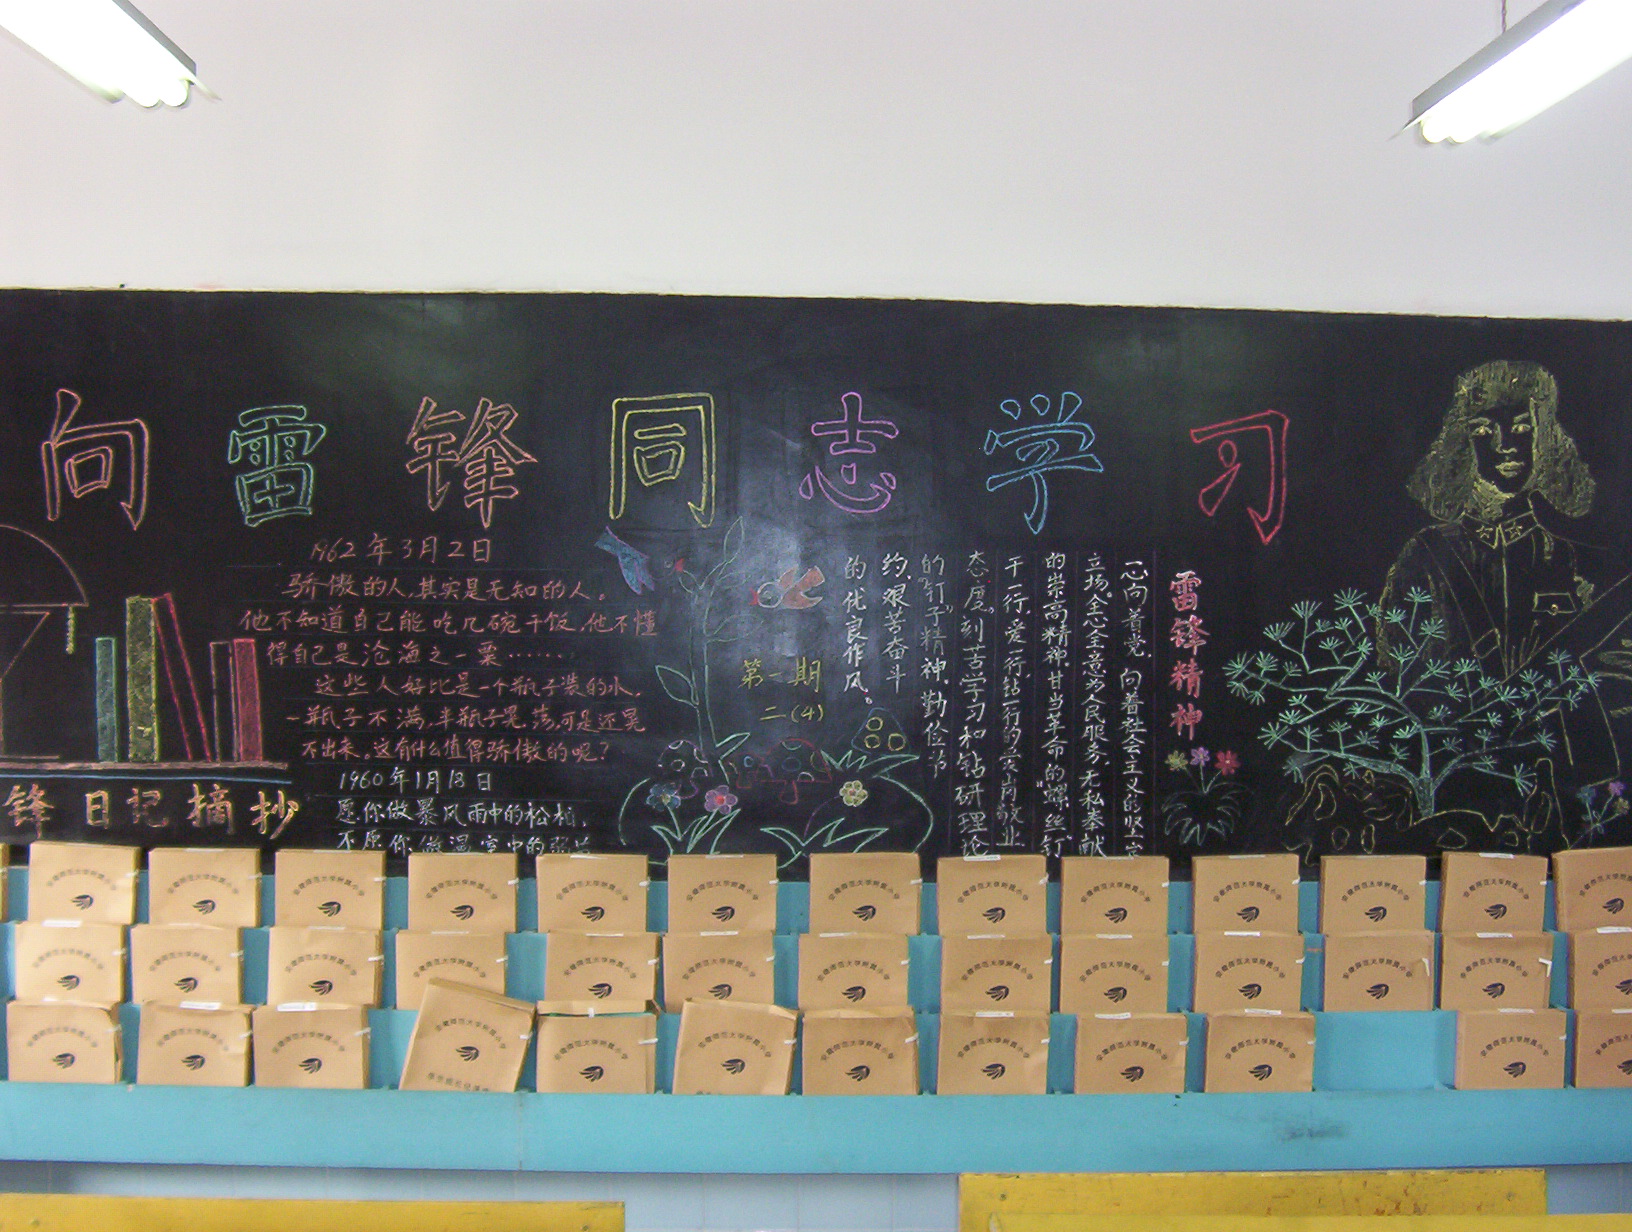 向雷锋同志学习
1962年3月2日
骄傲的人,其实是无知的人。
他不知道自己能吃几碗干饭,他不懂
得自己是沧海之一粟……
这些人好比是一个瓶子装的水,
一瓶子不满,半瓶子晃荡,可是还晃
不出来。这有什么值得骄傲的呢?
1960年1月18日
愿你做暴风雨中的松柏,
不愿你做温室中的弱
锋日记摘抄
第一期
二(4)
雷锋精神
一心向着党,向着社会主义的坚定
立场。全心全意为人民服务,无私奉献
的崇高精神。甘当革命的"螺丝钉
干一行,爱一行,钻一行的爱岗敬业
态度。刻苦学习和钻研理论
的"钉子"精神。勤俭节
约、艰苦奋斗
的优良作风。
安徽师范大学附属小学